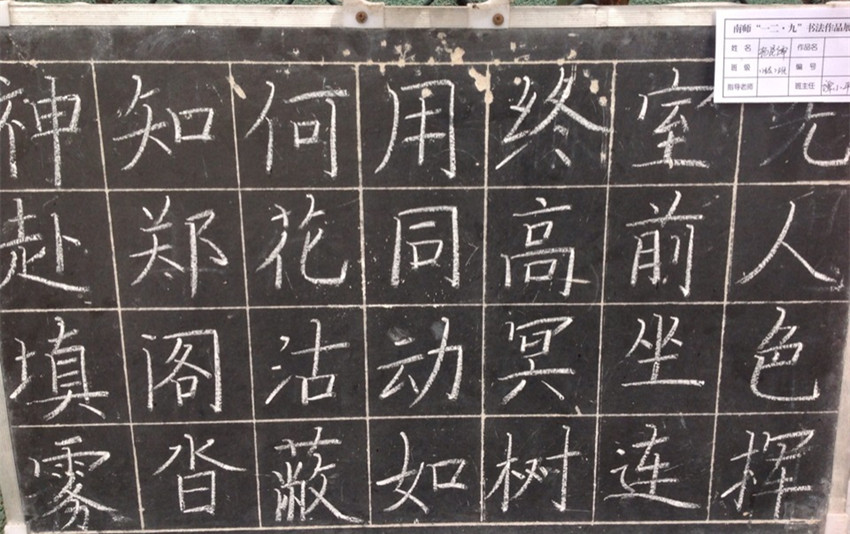 南师“一二·九”书法作品展
姓名 作品名
班级 编号
指导老师 班主任
神知何用终室先
赴郑花同高前人
填阁沽动冥坐色
雾沓蔽如树连挥